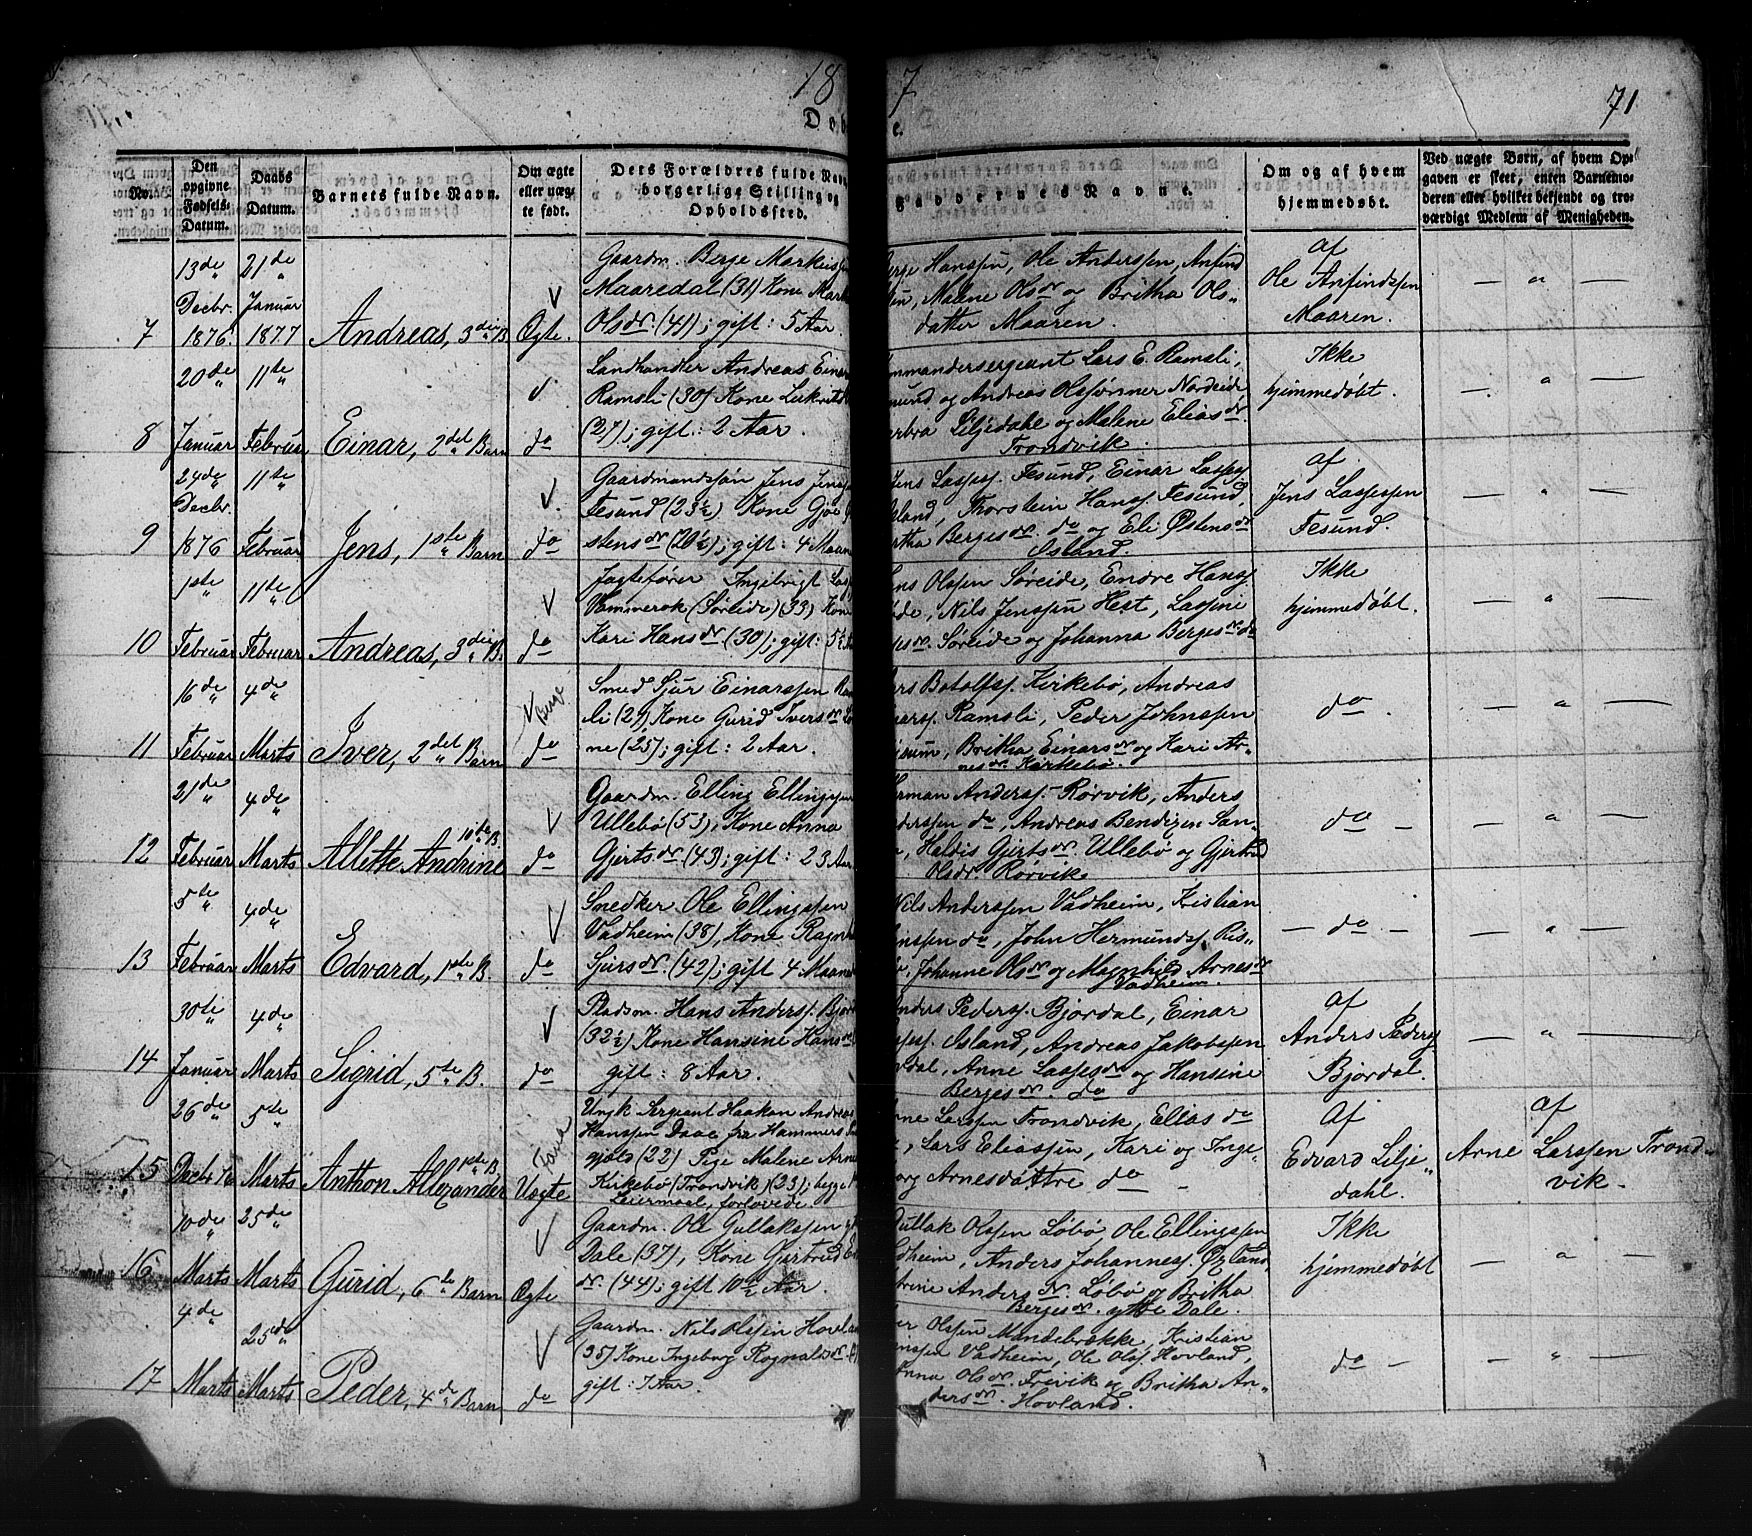 18
7
71
Døb
e.
No.
Den
opgivne
Fødsels-
Datum.
Daabs
Datum.
Barnets fulde Navn.
Om ægte
eller uæg-
te født.
Ders Forældres fulde Navn
borgerlige Stilling og
Opholdssted.
Faddernes Navne.
Om og af hvem
hjemmedøbt.
Ved uægte Børn, af hvem Op-
gaven er skeet, enten Barnemo-
deren eller hvilket bekjendt og tro-
værdigt Medlem af Menigheden.
7
13de
Decbr.
1876.
21de
Januar
1877
Andreas, 3die B
Ægte.
Gaardm. Berge Markus
Maaredal (31) Kone
Olsdr. (41); gift: 5 Aar.
Hanssen, Ole Anderssen, Anfind
Malene Olsdr og Britha Ols-
datter Maaren.
af
Ole Anfindssen
Maaren.
8
20de
Januar
11te
Februar
Einar, 2det Barn
do
Landhandler Andreas Einar
Ramsli (30) Kone
(27); gift: 2 Aar.
Commandersergeant Lars E. Ramsli,
og Andreas Olsjørner Nordeide
Liljedahl og Malene Eliasdr.
Trondvik.
Ikke
hjemmedøbt.
9
24de
Decbr.
1876
11te
Februar
Jens, 1ste Barn
do
Gaardmandssøn Jens Jens
Fesund (23½) Kone Gjør
stensdr (20½); gift: 4 Maane
Jens Lasses. Fesund, Einar Lasses
Thorstein Hans. Fesund,
Bergesdr. do og Eli Østensdr
Osland.
af
Jens Lassessen
Fesund.
10
1ste
Februar
11te
Februar
Andreas, 3die B.
do
Jagtefører Ingebrigt
Vammerok (Søreide) (33) Kone
Kari Hansdr (30); gift: 5½
Olssen Søreide, Endre Hans.
Nils Jenssen Hest, Lassine
Søreide og Johanna Bergesdr. do
Ikke
hjemmedøbt.
11
16de
Februar
4de
Marts
Iver, 2det Barn
do
Smed Sjur Einarssen
li (29) Kone Gurid Iversdr
ne (25); gift: 2 Aar.
Botolfs. Kirkebø, Andreas
Ramsli, Peder Johnssen
Britha Einarsdr og Kari Ar-
nesdr. Kirkebø.
do
12
21de
Februar
4de
Marts
10de B.
Allette Andrine
do
Gaardm. Elling Ellingssen
Ullebø (53), Kone Anna
Gjertsdr (43); gift: 23 Aar
Anders. Rørvik, Anders
do, Andreas Bendixen San-
Haldis Gjertsdr. Ullebø og Gjertrud
Olsdr. Rørvik.
do
13
5te
Februar
4de
Marts
Edvard, 1ste B.
do
Snedker Ole Ellingssen
Vadheim (38), Kone
Sjursdr (42); gift 4 Maane
Nils Anderssen Vadheim, Kristian
do, John Hermunds. Ris-
Johanne Olsdr og Magnhild Arnesdr
Vadheim.
do
14
30te
Januar
4de
Marts
Sigrid, 5te B.
do
Pladsm. Hans Anders. Bjor
(32½) Kone Hansine Hansdr
gift: 8 Aar.
Anders Peders. Bjordal, Einar
Osland, Andreas Jakobssen
Anne Lassesdr og Hansine
Bergesdr. do
af
Anders Peders
Bjordal.
15
26de
Decb 76
5te
Marts
1ste B.
Anthon Allexander
Uægte
Ungk Sergeant Haakon Andreas
Hanssen Daae fra Hammers
(22) Pige Malene Arne
Kirkebø (Trondvik) (23); begge
Leiermaal, forlovede.
Larssen Trondvik, Elias do
Lars Eliassen, Kari og Inge-
borg Arnesdattre do
Af
Edvard Lilje-
dahl.
af
Arne Larssen Trond-
vik.
16
10de
Marts
25de
Marts
Gurid, 6te Barn
Ægte
Gaardm. Ole Gullakssen
Dale (37), Kone Gjertrud
dr. (44); gift 10½ Aar.
Gullak Olssen Løbø, Ole Ellingssen
Vadheim, Anders Johannes.
Andersdr. Løbø og Britha
Bergesdr. ytte Dale.
Ikke
hjemmedøbt
17
4de
Marts
25de
Marts
Peder, 4de Barn
do
Gaardm. Nils Olssen Hovland
(35) Kone Ingeborg Rognaldsdr
gift: 7 Aar.
Olssen Mundebrokke, Kristian
Vadheim, Ole Ols. Hovland,
Anna Olsdr. Trevik og Britha An-
dersdr. Hovland.
do